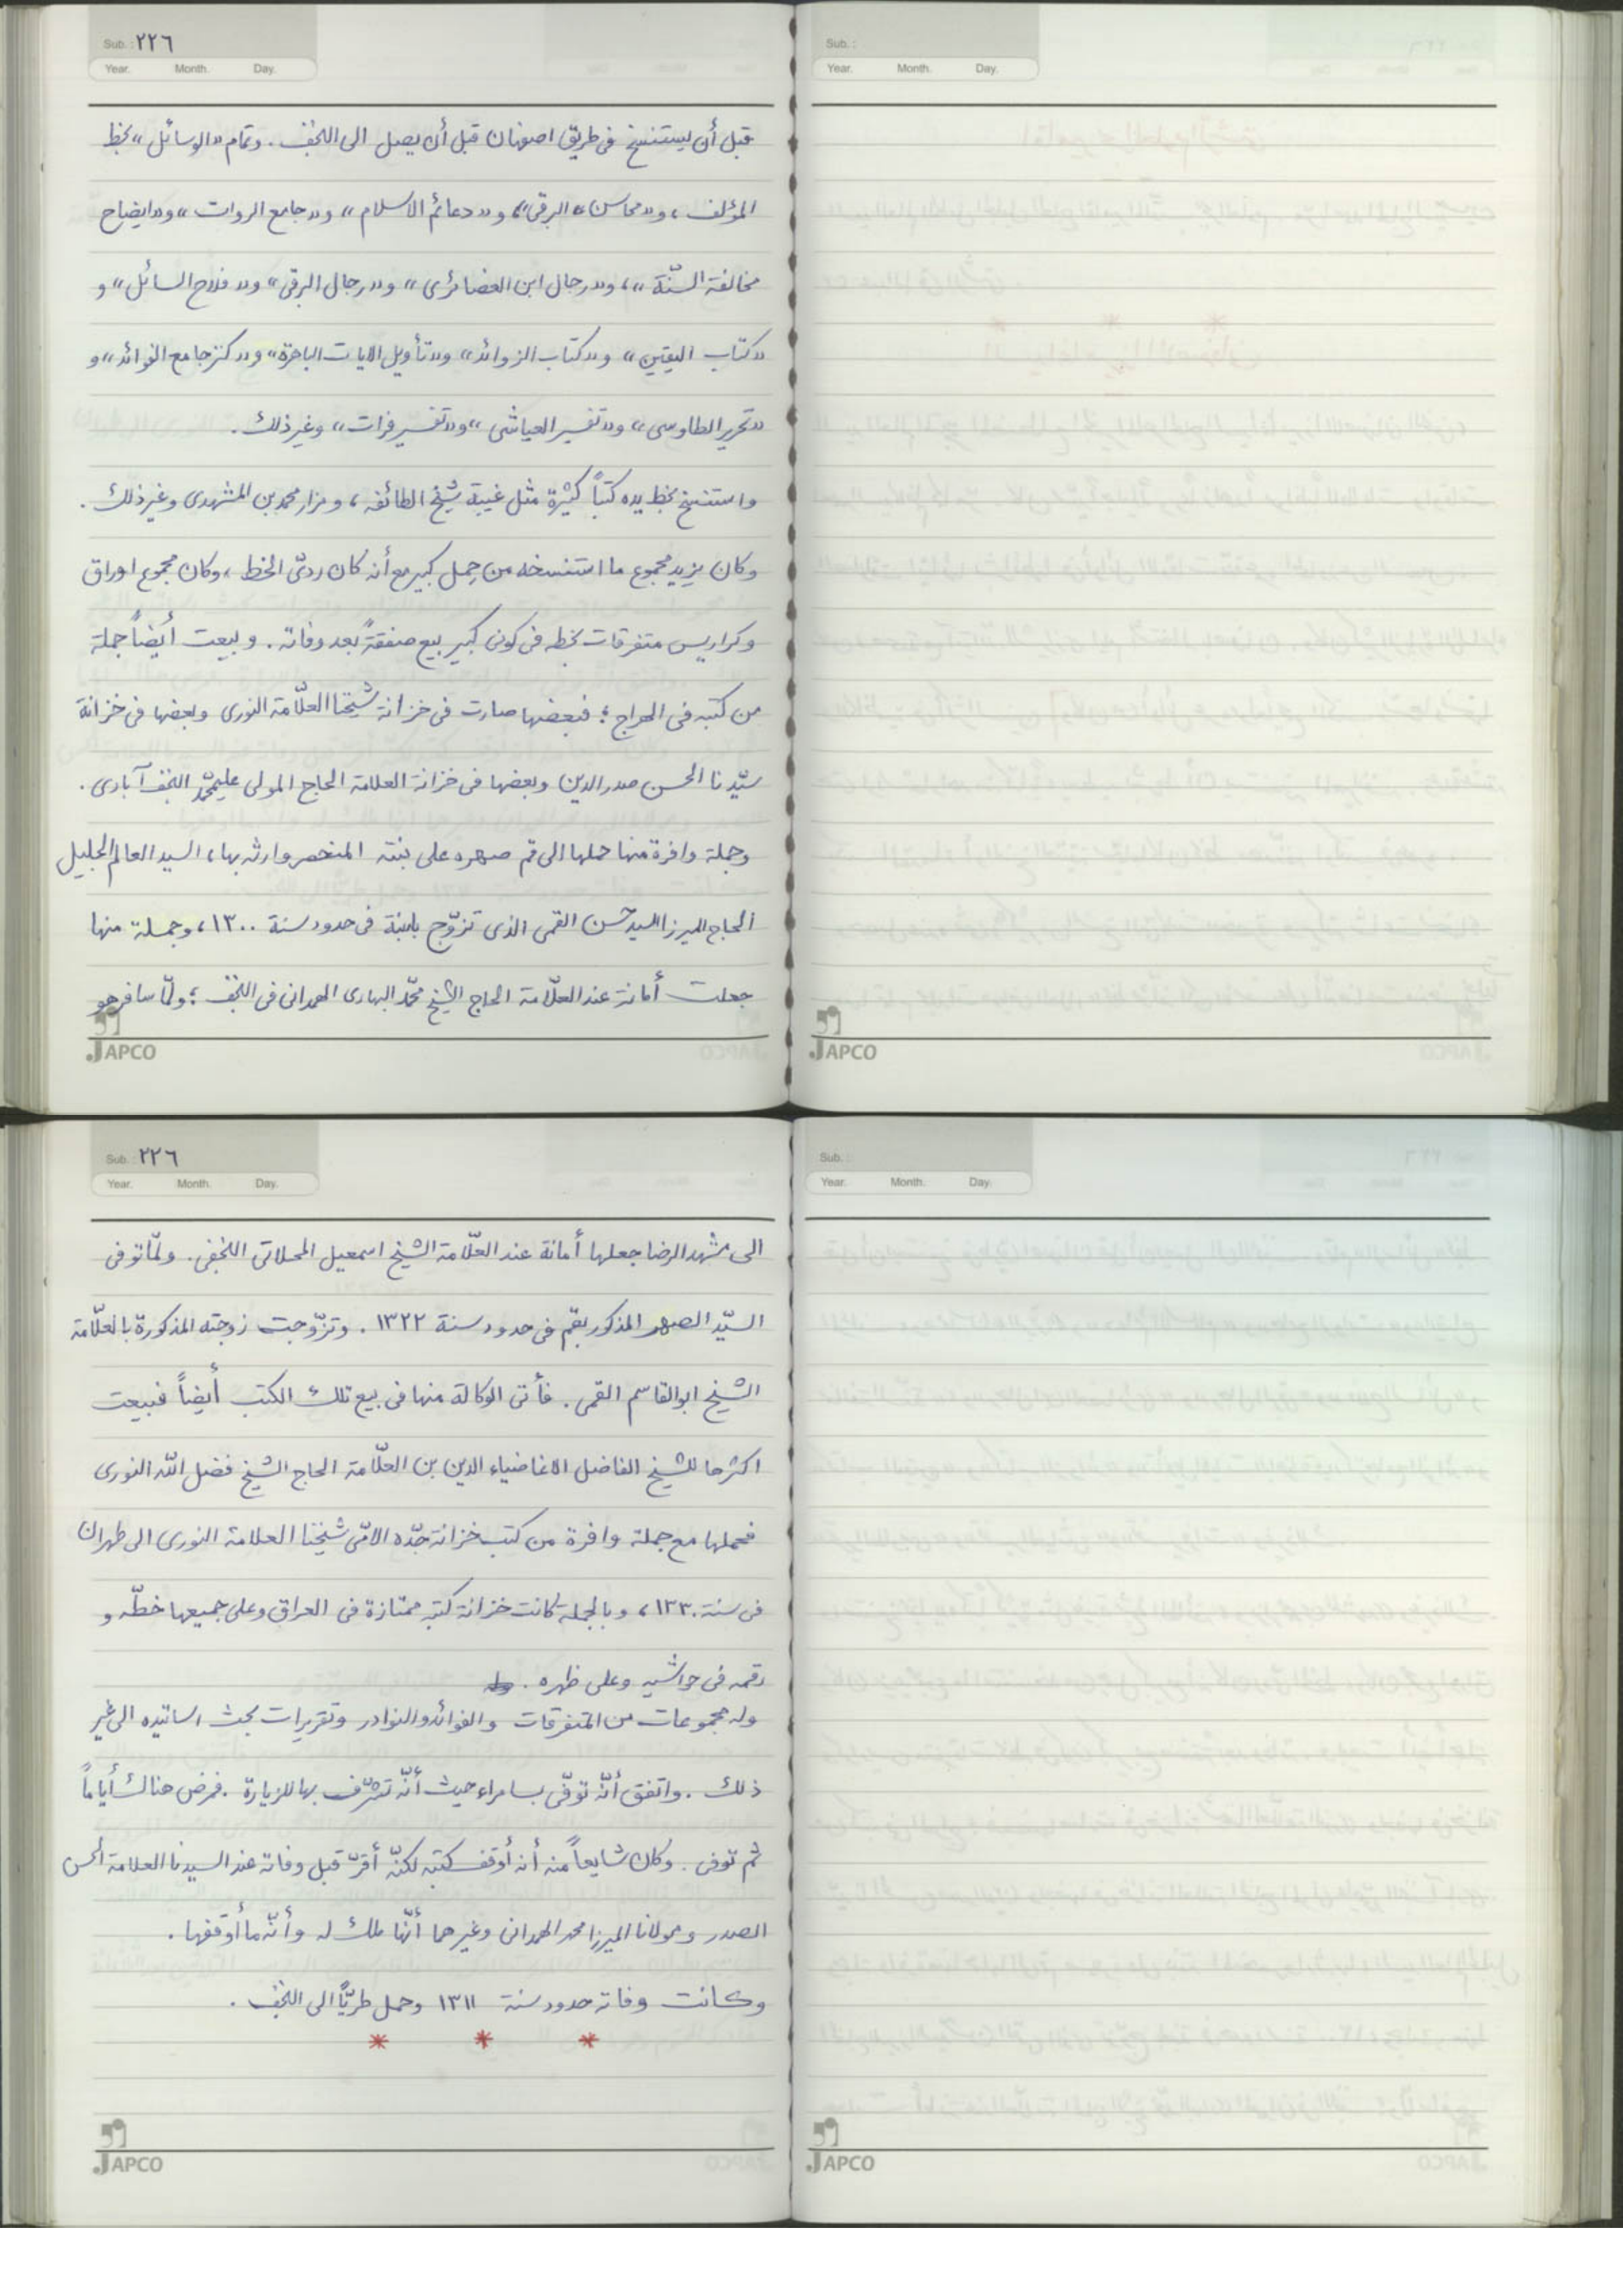 Sub.: ٢٢٦
Year. Month. Day.
قبل أن يستنسخ فى طريق اصفهان قبل أن يصل الى النجف. وتمام «الوسائل» بخط
المؤلف، و«محاسن» البرقى»، و«دعائم الاسلام» و«جامع الروات» و«ايضاح
مخالفة السنّة»، و«رجال ابن الغضائرى» و«رجال البرقى» و«فلاح السائل» و
«كتاب اليقين» و«كتاب الزوائد» و«تأويل الايات الباهرة» و«كنز جامع الفوائد» و
«تحرير الطاوسى» و«تفسير العياشى» و«تفسير فرات» وغير ذلك.
واستنسخ بخط يده كتباً كثيرة مثل غيبة شيخ الطائفه، ومزار محمد بن المشهدى وغير ذلك.
وكان يزيد مجموع ما استنسخه من حِمل كبير مع أنه كان ردىّ الخط، وكان مجموع اوراق
وكراريس متفرقات بخطه فى كونى كبير بيع صفقةً بعد وفاته. وبيعت أيضاً جملة
من كتبه فى الهراج؛ فبعضها صارت فى خزانة شيخنا العلّامة النورى وبعضها فى خزانة
سيّدنا الحسن صدر الدين وبعضها فى خزانة العلامة الحاج المولى عليمحمّد النجف آبادى.
وجملة وافرة منها حملها الى قم صهره على بنته المنحصر وارثه بها، السيد العالم الجليل
الحاج الميرزا السيد حسن القمى الذى تزوّج بابنته فى حدود سنة ١٣٠٠، وجملة منها
جعلت أمانة عند العلّامة الحاج الشيخ محمّد البهارى الهمدانى فى النجف؛ ولمّا سافر هو
JAPCO
Sub.:
Year. Month. Day.
JAPCO
Sub.: ٢٢٦
Year. Month. Day.
الى مشهد الرضا جعلها أمانة عند العلّامة الشيخ اسمعيل المحلاتى النجفى. ولمّا توفى
السيّد الصهر المذكور بقم فى حدود سنة ١٣٢٢. وتزوّجت زوجته المذكورة بالعلّامة
الشيخ ابوالقاسم القمى. فأتى الوكالة منها فى بيع تلك الكتب أيضاً فبيعت
اكثرها للشيخ الفاضل الاغا ضياء الدين بن العلّامة الحاج الشيخ فضل الله النورى
فحملها مع جملة وافرة من كتب خزانة جدّه الامّى شيخنا العلامة النورى الى طهران
فى سنة ١٣٣٠، وبالجملة كانت خزانة كتبه ممتازة فى العراق وعلى جميعها خطّه و
رقمه فى حواشيه وعلى ظهره.
وله مجموعات من المتفرقات والفوائد والنوادر وتقريرات بحث اساتيده الى غير
ذلك. واتفق أنّه توفّى بسامراء حيث أنّه تشرّف بها للزيارة. فمرض هناك أياماً
ثم توفى. وكان شايعاً منه أنه أوقف كتبه لكنّه أقرّ قبل وفاته عند السيدنا العلامة الحسن
الصدر ومولانا الميرزا محمد الهمدانى وغيرهما أنّها ملك له وأنّه ما أوقفها.
وكانت وفاته حدود سنة ١٣١١ وحمل طريّاً الى النجف.
* * *
JAPCO
Sub.:
Year. Month. Day.
JAPCO